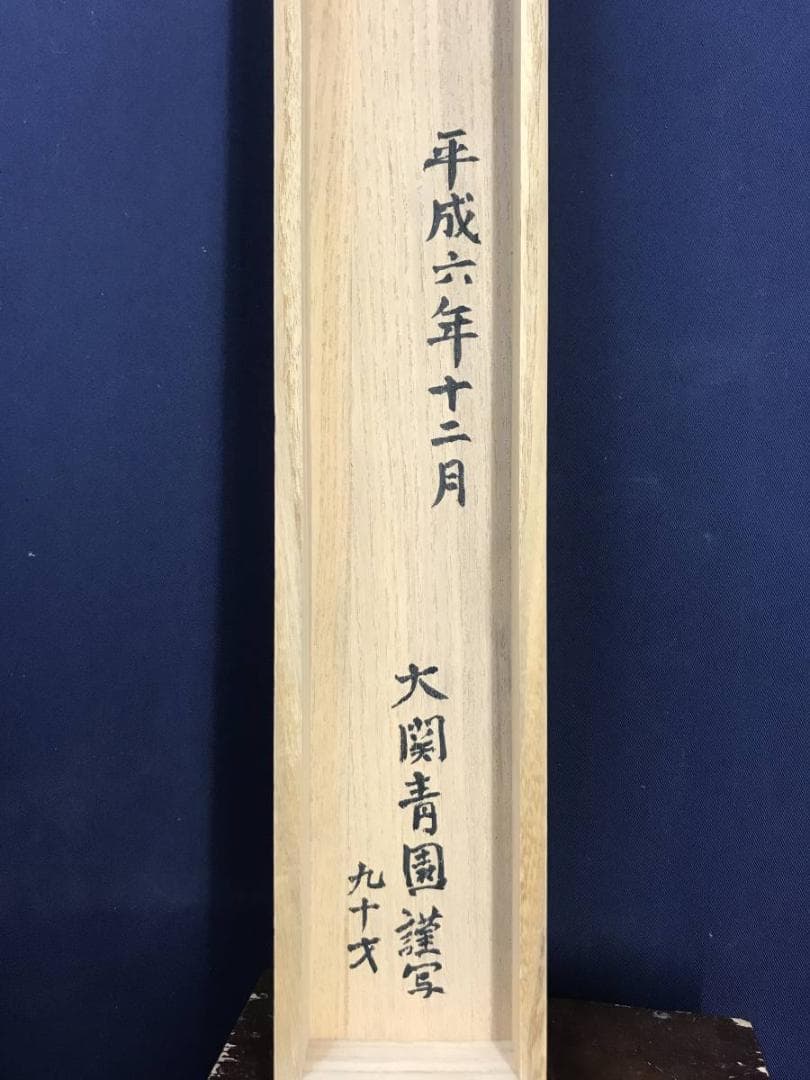 平成六年十二月
大関青園謹写
九十才